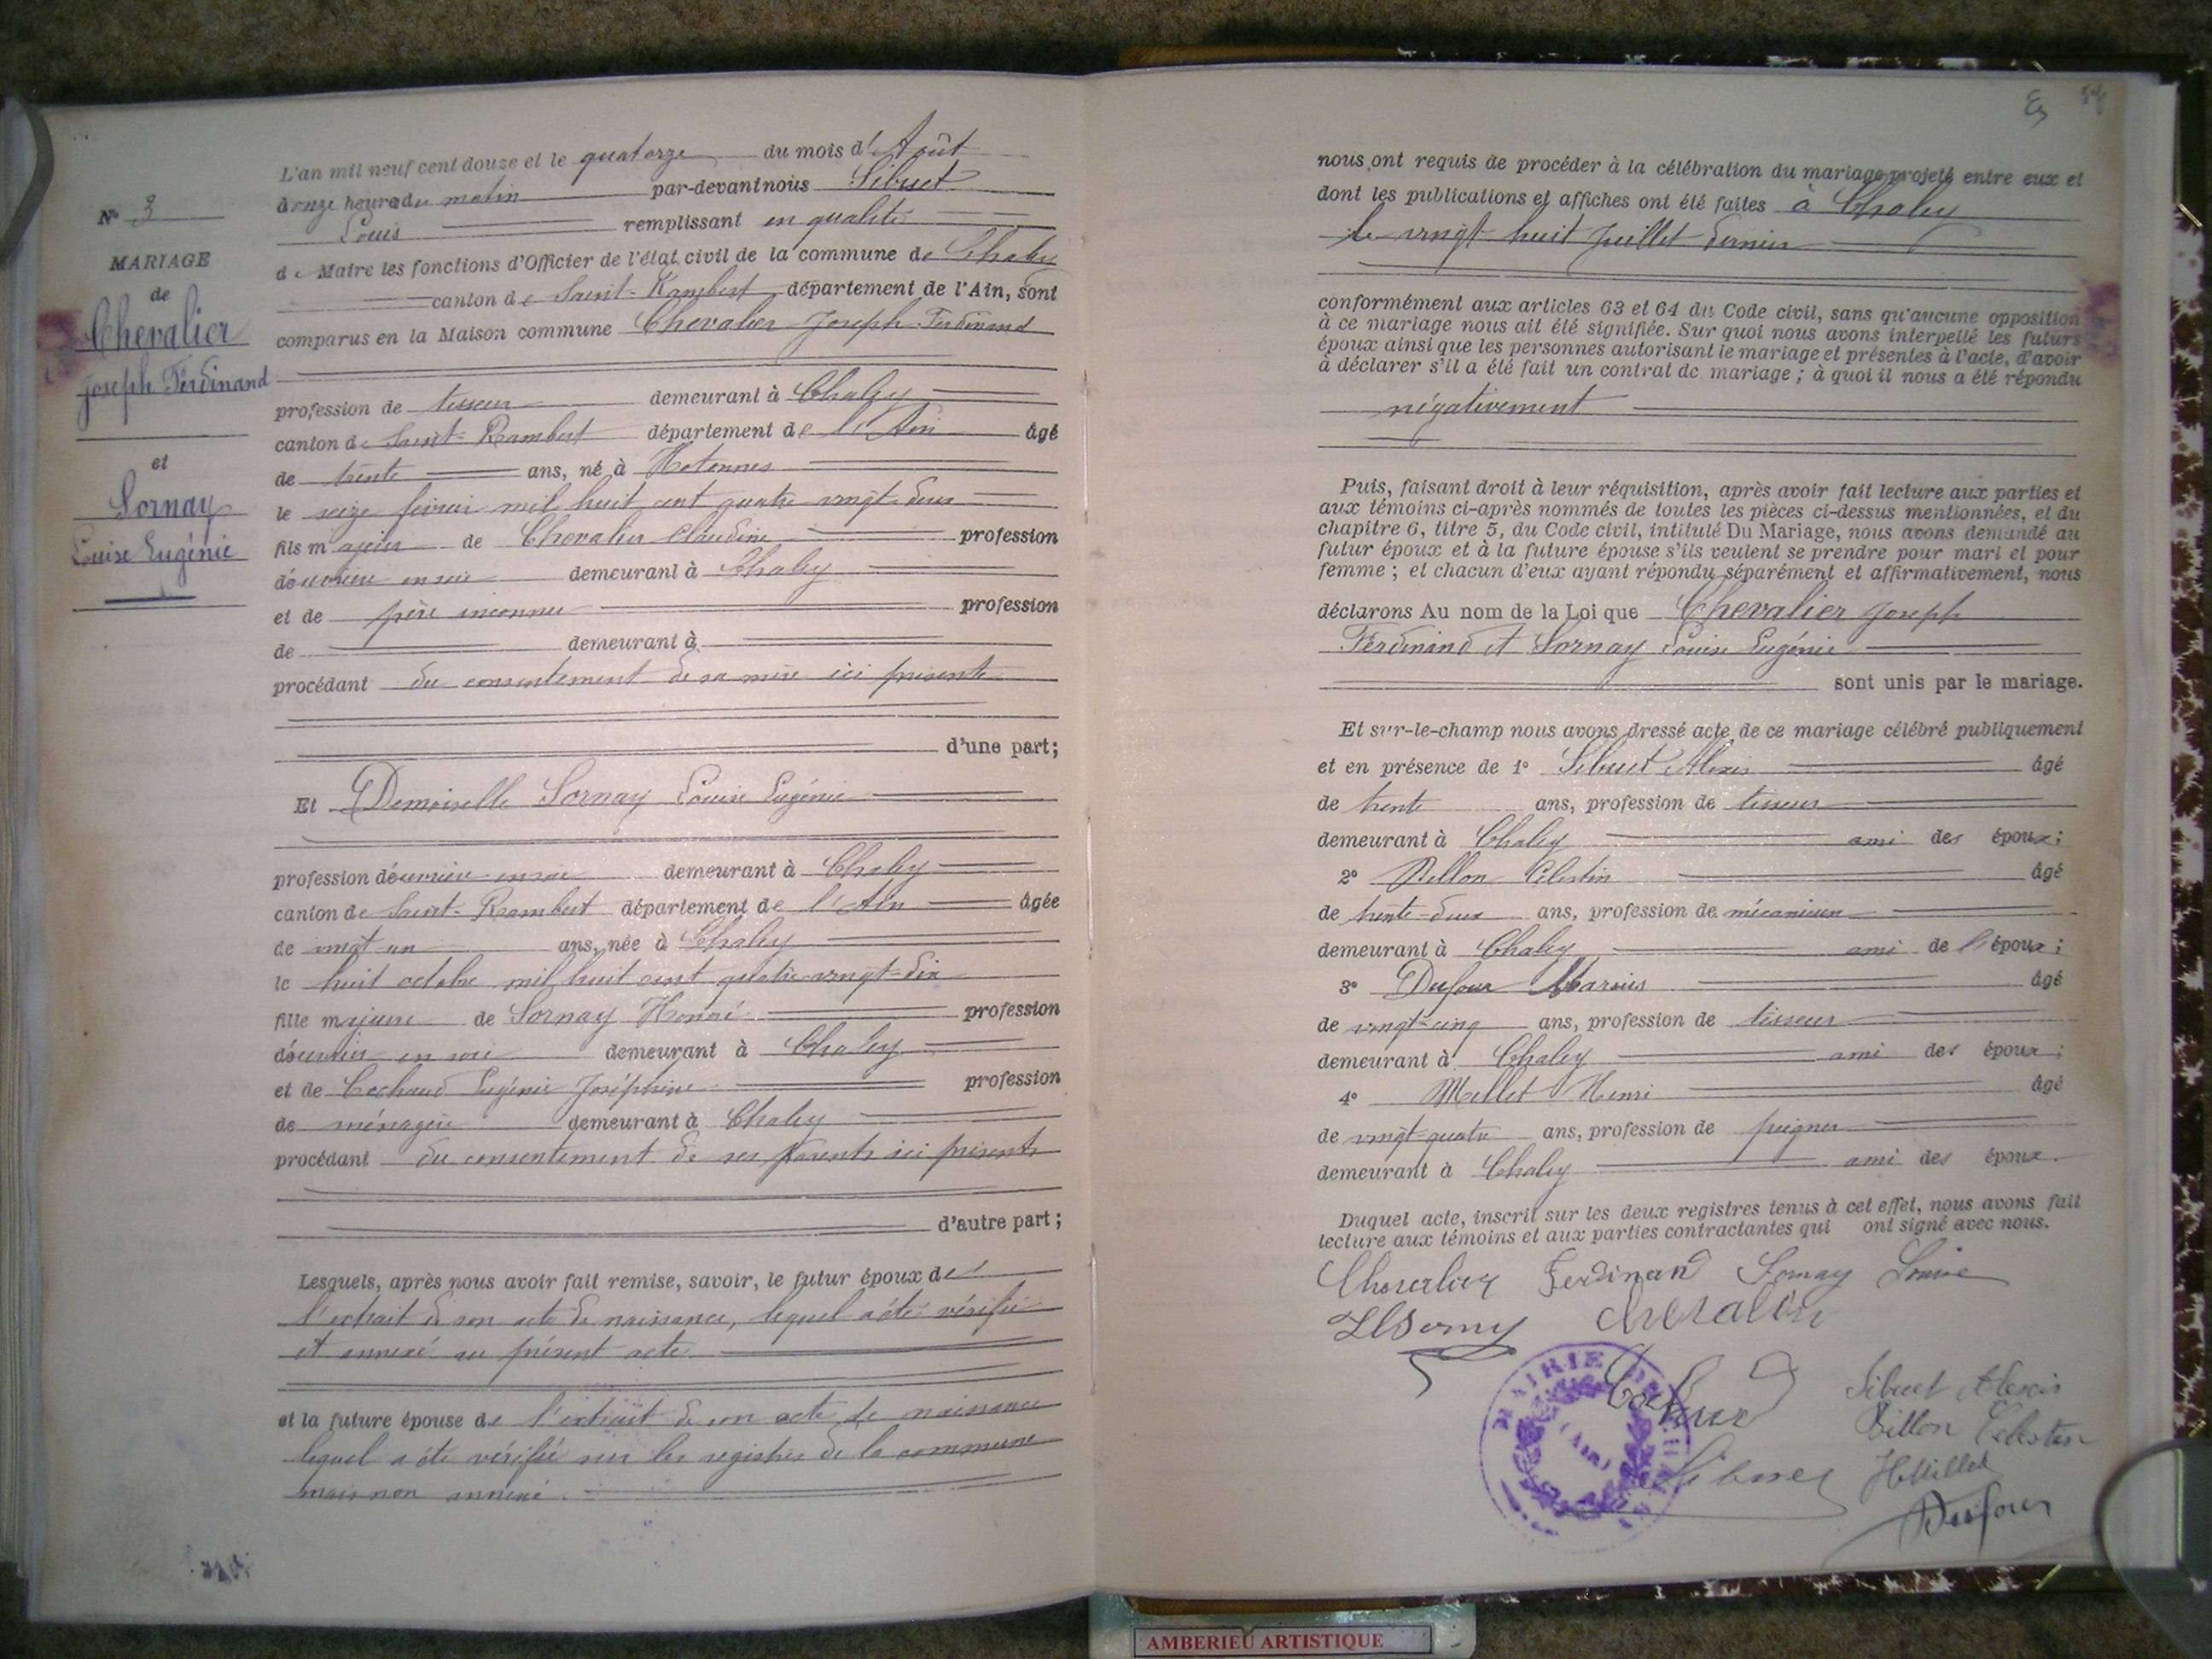 L'an mil neuf cent douze et le quatorze du mois d'Août
à onze heures du matin par-devant nous Sibuet
Louis remplissant en qualité
de Maire les fonctions d'Officier de l'état civil de la commune de Chaley
canton de Saint-Rambert, département de l'Ain, sont
comparus en la Maison commune Chevalier Joseph Ferdinand
profession de tisseur demeurant à Chaley
canton de Saint-Rambert département de l'Ain âgé
de trente ans, né à Hotonnes
le seize février mil huit cent quatre vingt-deux
fils majeur de Chevalier Claudine profession
d'ouvrière en soie demeurant à Chaley
et de père inconnu profession
de demeurant à
procédant du consentement de sa mère ici présente
d'une part;
Et Demoiselle Sornay Louise Eugénie
profession d'ouvrière en soie demeurant à Chaley
canton de Saint-Rambert département de l'Ain âgée
de vingt-un ans, née à Chaley
le huit octobre mil huit cent quatre-vingt-dix
fille majeure de Sornay Honoré profession
d'ouvrier en soie demeurant à Chaley
et de Cochaud Eugénie Joséphine profession
de ménagère demeurant à Chaley
procédant du consentement de ses parents ici présents
d'autre part;
Lesquels, après nous avoir fait remise, savoir, le futur époux de
l'extrait de son acte de naissance, lequel a été vérifié
et annexé au présent acte
et la future épouse de l'extrait de son acte de naissance
lequel a été vérifié sur les registres de la commune
mais non annexé.
N° 3
MARIAGE
de
Chevalier
Joseph Ferdinand
et
Sornay
Louise Eugénie
nous ont requis de procéder à la célébration du mariage projeté entre eux et
dont les publications et affiches ont été faites à Chaley
le vingt huit Juillet dernier
conformément aux articles 63 et 64 du Code civil, sans qu'aucune opposition
à ce mariage nous ait été signifiée. Sur quoi nous avons interpellé les futurs
époux ainsi que les personnes autorisant le mariage et présentes à l'acte, d'avoir
à déclarer s'il a été fait un contrat de mariage; à quoi il nous a été répondu
négativement
Puis, faisant droit à leur réquisition, après avoir fait lecture aux parties et
aux témoins ci-après nommés de toutes les pièces ci-dessus mentionnées, et du
chapitre 6, titre 5, du Code civil, intitulé Du Mariage, nous avons demandé au
futur époux et à la future épouse s'ils veulent se prendre pour mari et pour
femme; et chacun d'eux ayant répondu séparément et affirmativement, nous
déclarons Au nom de la Loi que Chevalier Joseph
Ferdinand et Sornay Louise Eugénie
sont unis par le mariage.
Et sur-le-champ nous avons dressé acte de ce mariage célébré publiquement
et en présence de 1° Sibuet Alexis âgé
de trente ans, profession de tisseur
demeurant à Chaley ami des époux;
2° Billon Célestin âgé
de trente-deux ans, profession de mécanicien
demeurant à Chaley ami de l'époux;
3° Dufour Marius âgé
de vingt-cinq ans, profession de tisseur
demeurant à Chaley ami des époux;
4° Millet Henri âgé
de vingt-quatre ans, profession de peigneur
demeurant à Chaley ami des époux.
Duquel acte, inscrit sur les deux registres tenus à cet effet, nous avons fait
lecture aux témoins et aux parties contractantes qui ont signé avec nous.
Chevalier Ferdinand Sornay Louise
Sornay Chevalier
Sibuet Alexis
Billon Célestin
Sibuet HMillet
Dufour
MAIRIE DE
(Ain)
AMBERIEU ARTISTIQUE